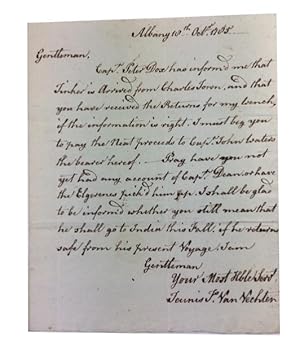 Albany 10th Octr. 1785
Gentleman,
Capt. Peter Dox has informed me that
Tinker is Arrived from Charles Town, and that
you have received the Returns for my wench,
if the information is right, I must beg you
to pay the Neat proceeds to Capt. John Waters
the bearer hereof. — Pray have you not
yet had any account of Capt. Dean, or have
the Algerenes pick'd him up. I shall be glad
to be informd whether you still mean that
he shall go to India this Fall, if he returns
safe from his present Voyage. I am
Gentleman
Your Most Hble Servt.
Teunis T. Van Vechten